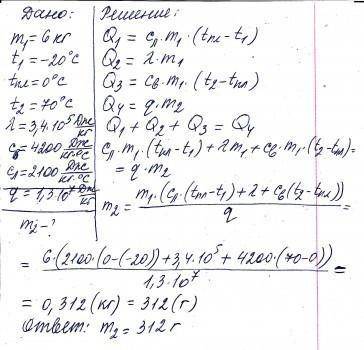 Дано:
m₁=6 кг
t₁=-20°C
tпл=0°C
t₂=70°C
λ=3,4·10⁵ Дж/кг
cв=4200 Дж/кг·°C
cл=2100 Дж/кг·°C
q=1,3·10⁷ Дж/кг
m₂-?
Решение:
Q₁ = cл·m₁·(tпл-t₁)
Q₂ = λ·m₁
Q₃ = cв·m₁·(t₂-tпл)
Q₄ = q·m₂
Q₁+Q₂+Q₃=Q₄
cл·m₁·(tпл-t₁)+λm₁+cв·m₁·(t₂-tпл)=
=q·m₂
m₂ = m₁·(cл·(tпл-t₁)+λ+cв(t₂-tпл))/q =
= 6·(2100·(0-(-20))+3,4·10⁵+4200·(70-0))/1,3·10⁷ =
= 0,312(кг) = 312(г)
Ответ: m₂=312г